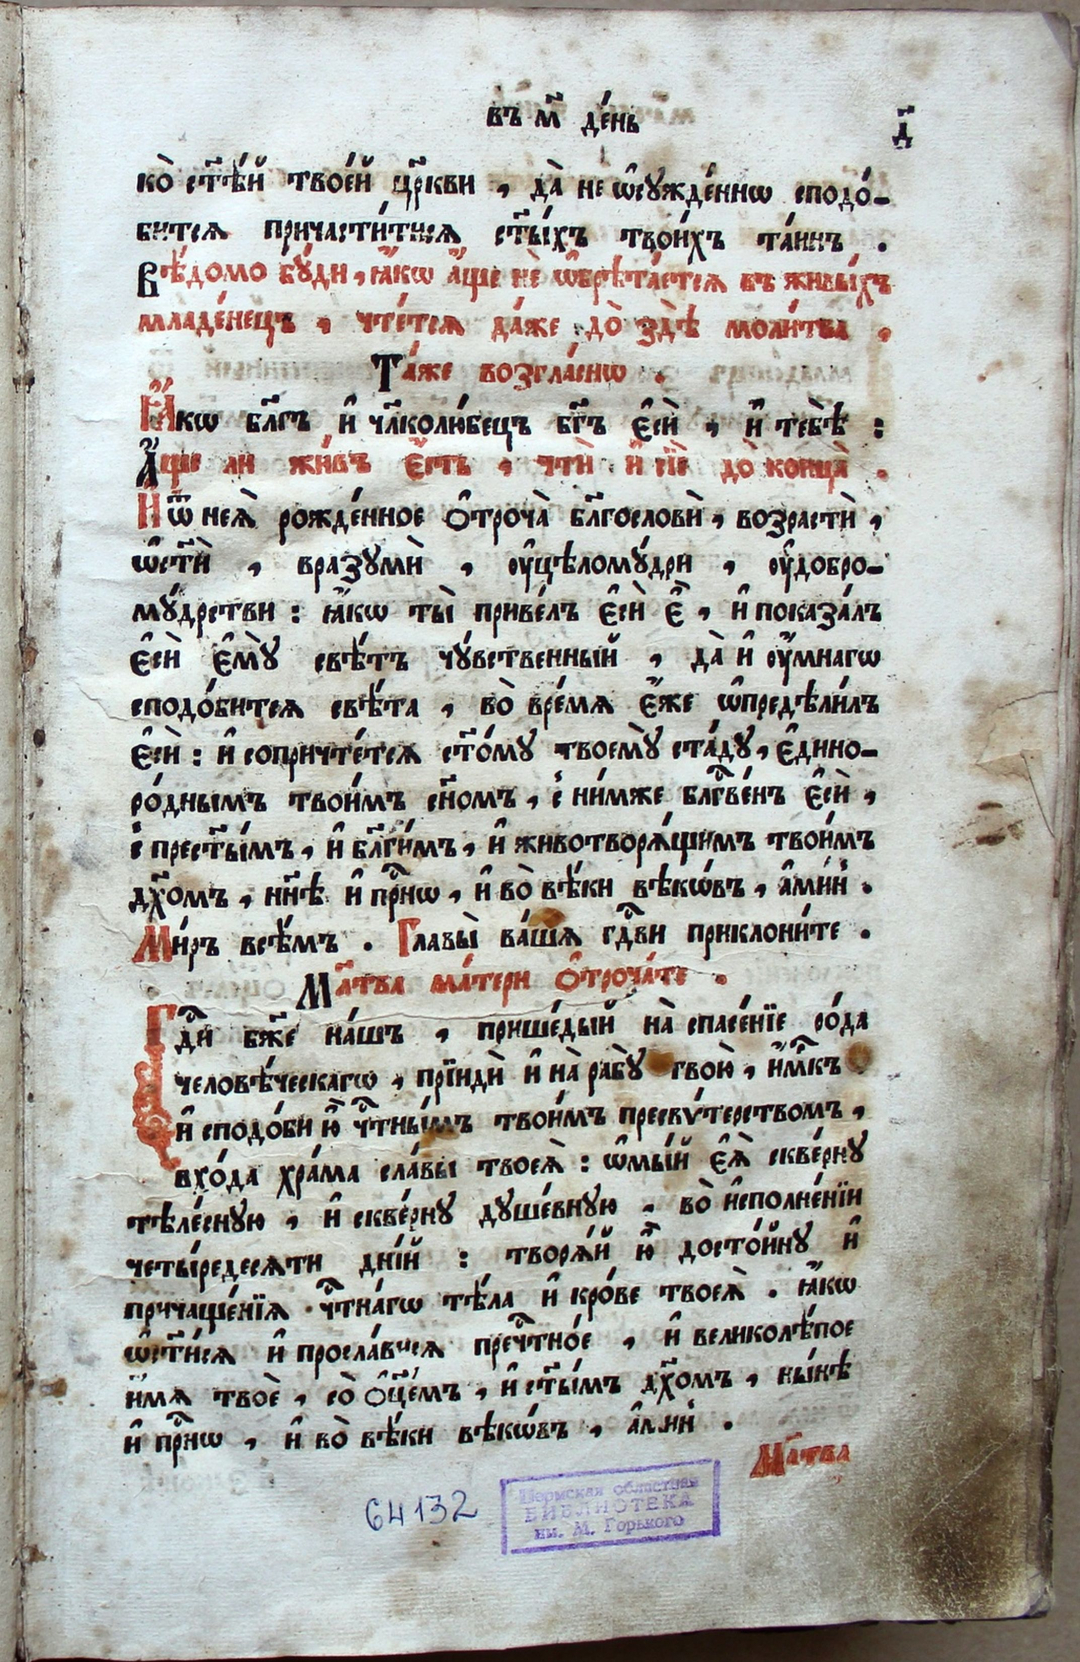 въ м҃ де́нь
д҃
ко̀ ст҃ѣ́й твое́й цр҃кви , да̀ не ѡ҆сужде́ннѡ сподо́-
битсѧ причасти́тисѧ ст҃ы́хъ твои́хъ та́инъ .
Вѣ́домо бу́ди , ꙗ҆́кѡ а҆́ще нѐ ѡ҆брѣта́етсѧ въ живы́хъ
младе́нецъ , чте́тсѧ да́же до̀ здѣ̀ моли́тва ,
Та́же возгла́снѡ .
Ꙗ҆́кѡ бл҃гъ и҆ чл҃колю́бецъ бг҃ъ є҆сѝ , и҆ тебѣ̀ :
А҆́ще ли жи́въ є҆́сть , чтѝ и҆ сїѐ до̀ конца̀ .
И҆ ѿ неѧ̀ рожде́нное ѻ҆троча̀ бл҃гословѝ , возрастѝ ,
ѡ҆ст҃ѝ , вразумѝ , оу҆цѣлому́дри , оу҆добро-
му́дрстви : ꙗ҆́кѡ ты̀ приве́лъ є҆сѝ є҆̀ , и҆ показа́лъ
є҆сѝ є҆му̀ свѣ́тъ чу́вственный , да̀ и҆ оу҆́мнагѡ
сподо́битсѧ свѣ́та , во̀ вре́мѧ є҆́же ѡ҆предѣли́лъ
є҆сѝ : и҆ сопричте́тсѧ ст҃о́му твоему̀ ста́ду , є҆дино-
ро́днымъ твои́мъ сн҃омъ , с ни́мже блг҃ве́нъ є҆сѝ ,
с прест҃ы́мъ , и҆ бл҃ги́мъ , и҆ животворѧ́щимъ твои́мъ
дх҃омъ , нн҃ѣ и҆ пр҃нѡ , и҆ во̀ вѣ́ки вѣкѡ́въ , а҆ми́нь .
Ми́ръ всѣ́мъ . Главы̀ ва́шѧ гд҃ви приклони́те .
Мл҃тва ма́тери ѻ҆троча́те .
Гд҃и бж҃е на́шъ , прише́дый на̀ спасе́нїе ро́да
человѣ́ческагѡ , прїидѝ и҆ на̀ рабу̀ твою̀ , и҆м҃къ
и҆ сподо́би ю҆̀ чт҃ны́мъ твои́мъ пресвѵ́терством ,
вхо́да хра́ма сла́вы твоеѧ̀ : ѡ҆мы́й є҆ѧ̀ скве́рну
тѣле́сную , и҆ скве́рну душе́вную , во̀ и҆сполне́нїи
четы́редесѧти дні́й : творѧ́й ю҆̀ досто́йну и҆
причаще́нїѧ чт҃на́гѡ тѣ́ла и҆ кро́ве твоеѧ̀ . ꙗ҆́кѡ
ѡ҆ст҃и́сѧ и҆ просла́висѧ пречт҃но́е , и҆ великолѣ́пое
и҆́мѧ твоѐ , со̀ ѻ҆ц҃е́мъ , и҆ ст҃ы́мъ дх҃омъ , ны́нѣ
и҆ пр҃нѡ , и҆ во̀ вѣ́ки вѣкѡ́въ , а҆ми́нь .
Мл҃тва
64132
Пермская областная
БИБЛИОТЕКА
им. М. Горького